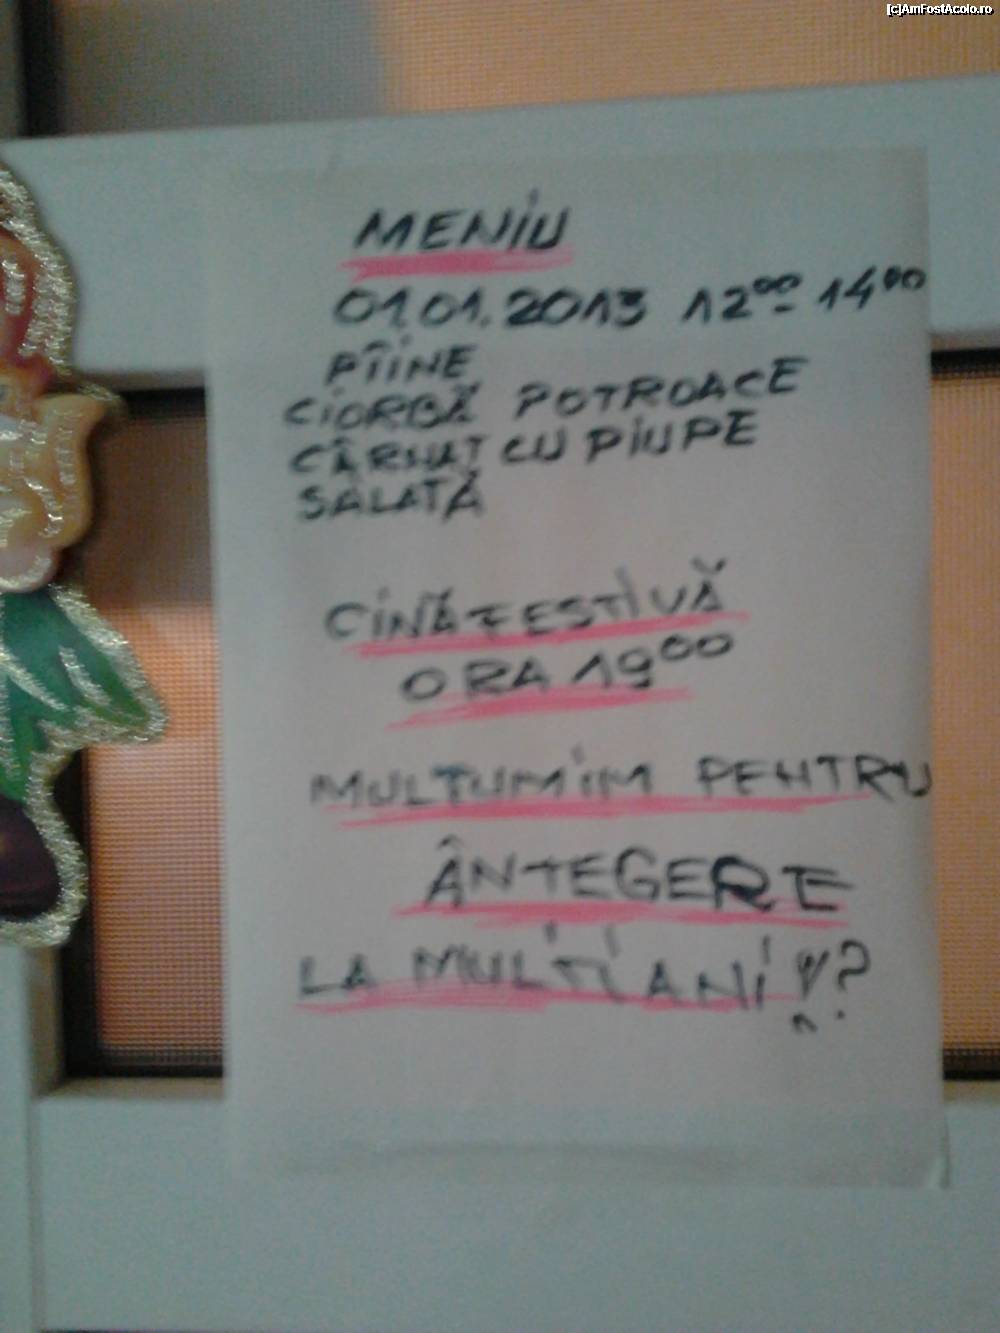 [c]AmFostAcolo.ro
MENIU
01.01.2013 12⁰⁰- 14⁰⁰
PÎINE
CIORBĂ POTROACE
CÂRNAȚ CU PIUPE
SALATĂ
CINĂ FESTIVĂ
ORA 19⁰⁰
MULȚUMIM PENTRU
ÂNTEGERE
LA MULȚI ANI !?